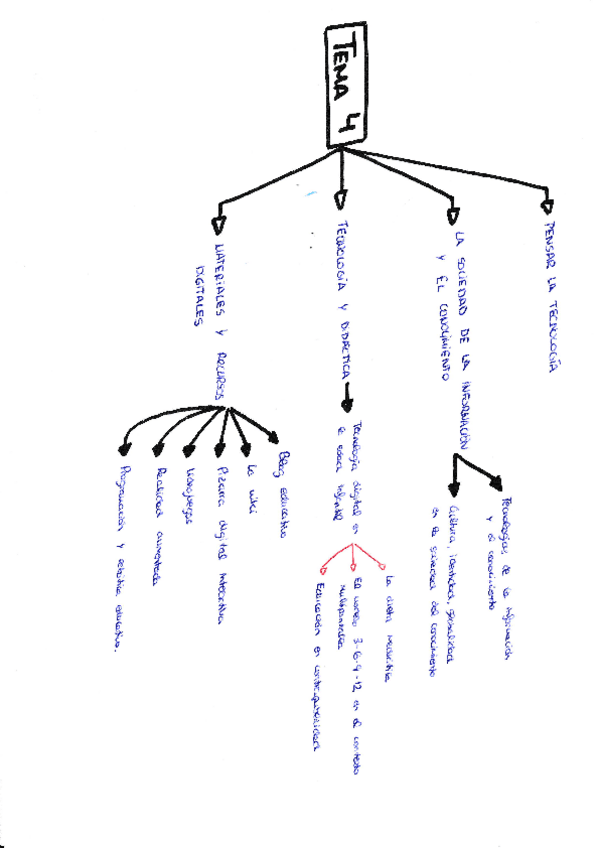 TEMA 4
PENSAR LA TECNOLOGÍA
LA SOCIEDAD DE LA INFORMACIÓN
Y EL CONOCIMIENTO
Tecnologías de la información
y el conocimiento
Cultura, identidad, globalidad
en la sociedad del conocimiento
TECNOLOGÍA Y DIDÁCTICA
Tecnología digital en
la edad infantil
La dieta
El consejo 3-6-9-12 en el contexto
multipantalla
Educación en contraposición
MATERIALES Y RECURSOS
DIGITALES
Blog educativo
La wiki
Pizarra digital Interactiva
Videojuegos
Realidad aumentada
Programación y robótica educativa.